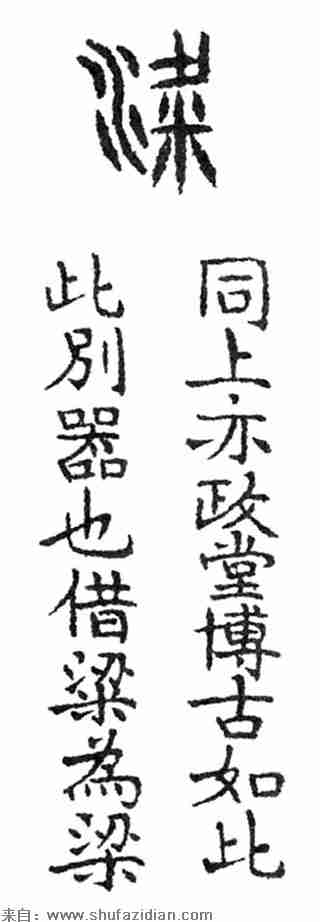 同上亦政堂博古如此
此別器也借粱為梁
来自：www.shufazidian.com